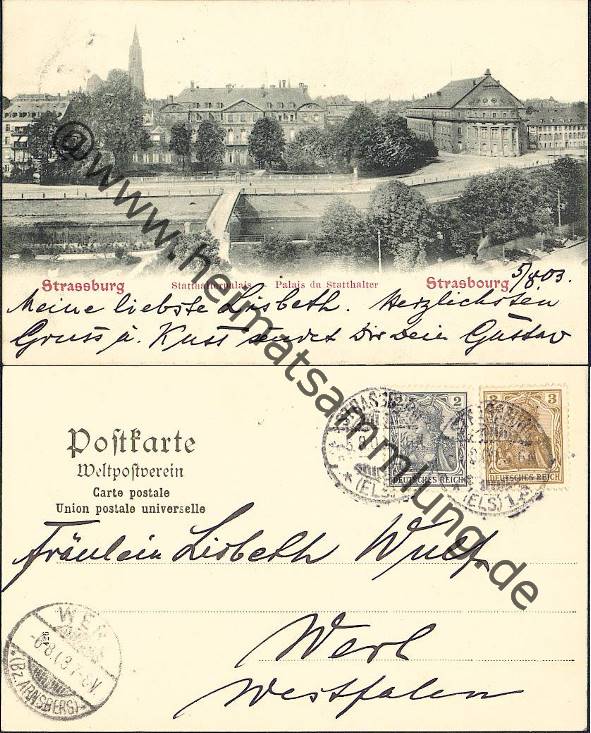 Strassburg Statthalterpalais - Palais du Statthalter Strasbourg
5/8 03.
Meine liebste Lisbeth. Herzlichsten
Gruss u. Kuss sendet Dir Dein Gustav
@www.heimatsammlung.de
Postkarte
Weltpostverein
Carte postale
Union postale universelle
2 3
DEUTSCHES REICH DEUTSCHES REICH
STRASSBURG
(ELS) 1
Fräulein Lisbeth Wulf
Werl
Westfalen
WERL
(Bz. ARNSBERG)